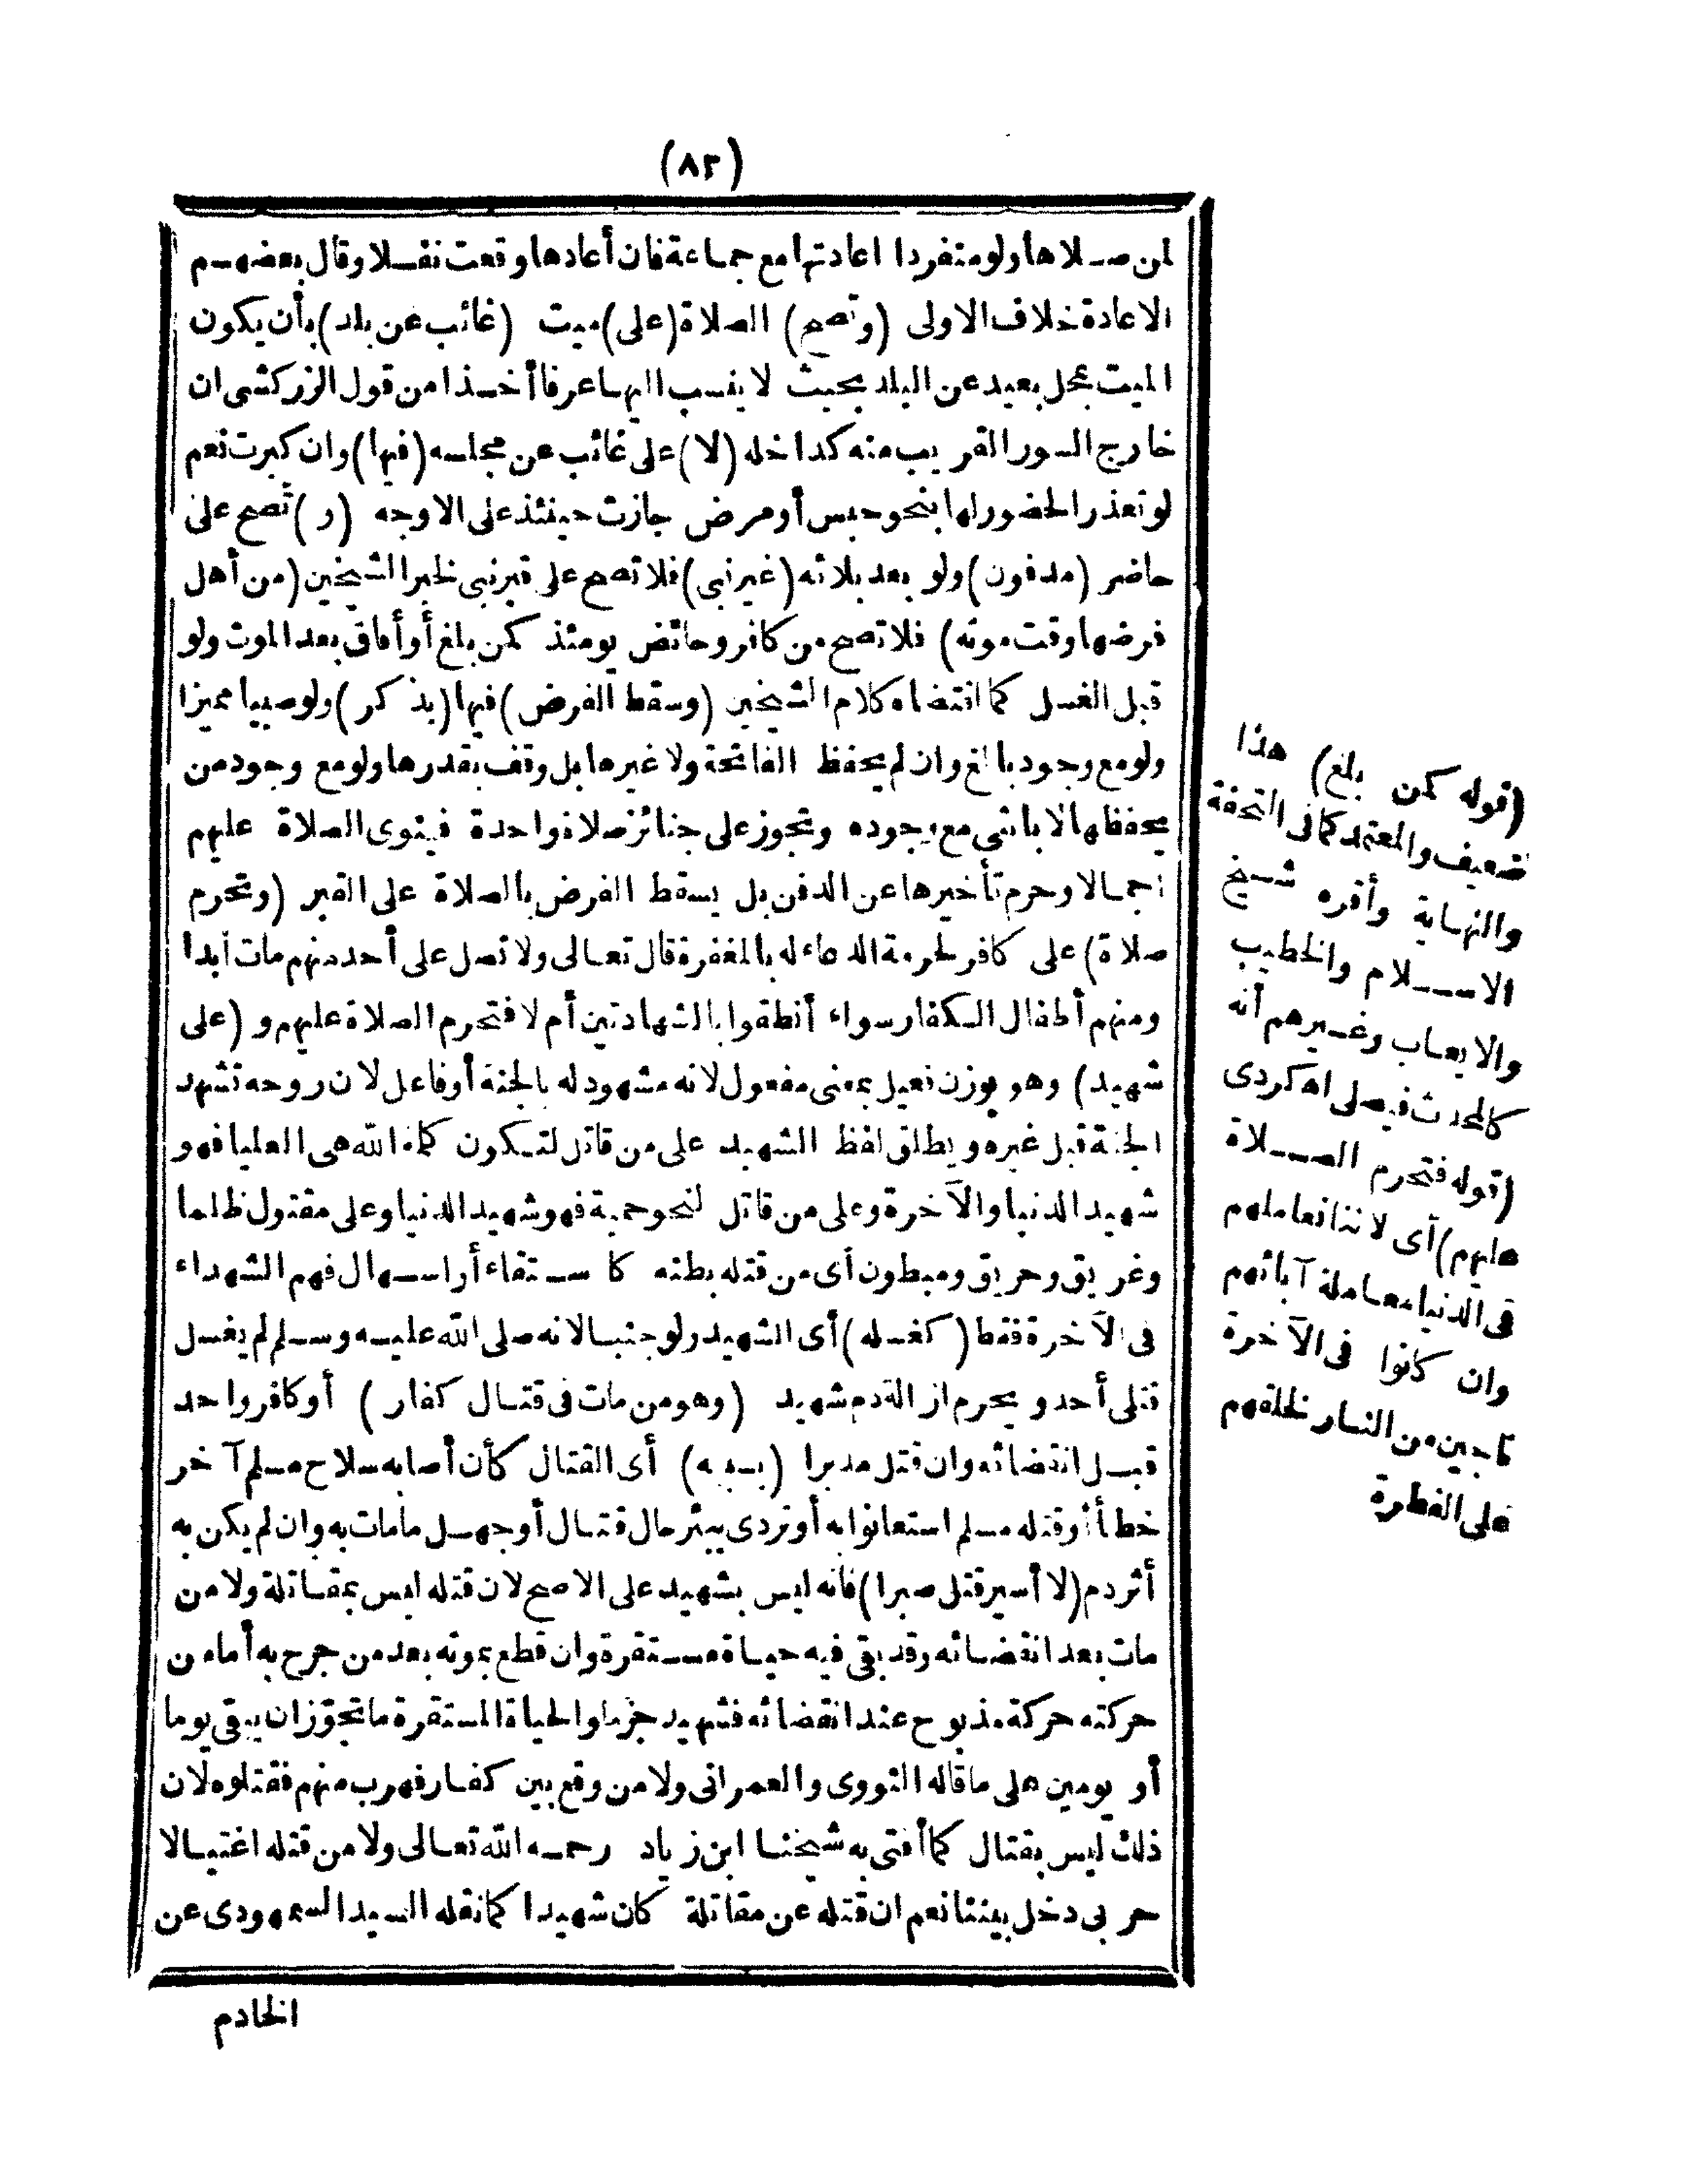 (٨٢)
لمن صلاها ولو منفردا اعادتها مع جماعة فان أعادها وقعت نفلا وقال بعضهم
الاعادة خلاف الاولى (وتصح) الصلاة (على) ميت (غائب عن بلد) بأن يكون
الميت بمحل بعيد عن البلد بحيث لا ينسب اليها عرفا أخذا من قول الزركشى ان
خارج السور القريب منه كداخله (لا) على غائب عن مجلسه (فيها) وان كبرت نعم
لو تعذر الحضور لها بنحو حبس أو مرض جازت حينئذ على الاوجه (و) تصح على
حاضر (مدفون) ولو بعد بلائه (غير نبى) فلا تصح على قبر نبى لخبر الشيخين (من أهل
فرضها وقت موته) فلا تصح من كافر وحائض يومئذ كمن بلغ أو أفاق بعد الموت ولو
قبل الغسل كما اقتضاه كلام الشيخين (وسقط الفرض) فيها (بذكر) ولو صبيا مميزا
ولو مع وجود بالغ وان لم يحفظ الفاتحة ولا غيرها بل وقف بقدرها ولو مع وجود من
يحفظها لا بأنثى مع وجوده وتجوز على جنائز صلاة واحدة فينوى الصلاة عليهم
اجمالا وحرم تأخيرها عن الدفن بل يسقط الفرض بالصلاة على القبر (وتحرم
صلاة) على كافر لحرمة الدعاء له بالمغفرة قال تعالى ولا تصل على أحد منهم مات أبدا
ومنهم أطفال الكفار سواء أنطقوا بالشهادتين أم لا فتحرم الصلاة عليهم و (على
شهيد) وهو بوزن فعيل بمعنى مفعول لانه مشهود له بالجنة أو فاعل لان روحه تشهد
الجنة قبل غيره ويطلق لفظ الشهيد على من قاتل لتكون كلمة الله هى العليا فهو
شهيد الدنيا والآخرة وعلى من قاتل لنحو حمية فهو شهيد الدنيا وعلى مقتول ظلما
وغريق وحريق ومبطون أى من قتله بطنه كاستسقاء أو اسهال فهم الشهداء
فى الآخرة فقط (كغسله) أى الشهيد ولو جنبا لانه صلى الله عليه وسلم لم يغسل
قتلى أحد ويحرم ازالة دم شهيد (وهو من مات فى قتال كفار) أو كافر واحد
قبل انقضائه وان قتل مدبرا (بسببه) أى القتال كأن أصابه سلاح مسلم آخر
خطأ أو قتله مسلم استعانوا به أو تردى ببئر حال قتال أو جهل ما مات به وان لم يكن به
أثر دم (لا أسير قتل صبرا) فانه ليس بشهيد على الاصح لان قتله ليس بمقاتلة ولا من
مات بعد انقضائه وقد بقى فيه حياة مستقرة وان قطع بموته بعد من جرح به أما من
حركته حركة مذبوح عند انقضائه فشهيد جزما والحياة المستقرة ما تجوّز ان يبقى يوما
أو يومين على ما قاله النووى والعمرانى ولا من وقع بين كفار فهرب منهم فقتلوه لان
ذلك ليس بقتال كما أفتى به شيخنا ابن زياد رحمه الله تعالى ولا من قتله اغتيالا
حربى دخل بيننا نعم ان قتله عن مقاتلة كان شهيدا كما نقله السيد السمهودى عن
الخادم
(قوله كمن بلغ) هذا
ضعيف والمعتمد كما فى التحفة
والنهاية وأقره شيخ
الاسلام والخطيب
والايعاب وغيرهم أنه
كالمحدث فيصلى اه كردى
(قوله فتحرم الصلاة
عليهم) أى لاننا نعاملهم
فى الدنيا معاملة آبائهم
وان كانوا فى الآخرة
ناجين من النار لخلقهم
على الفطرة